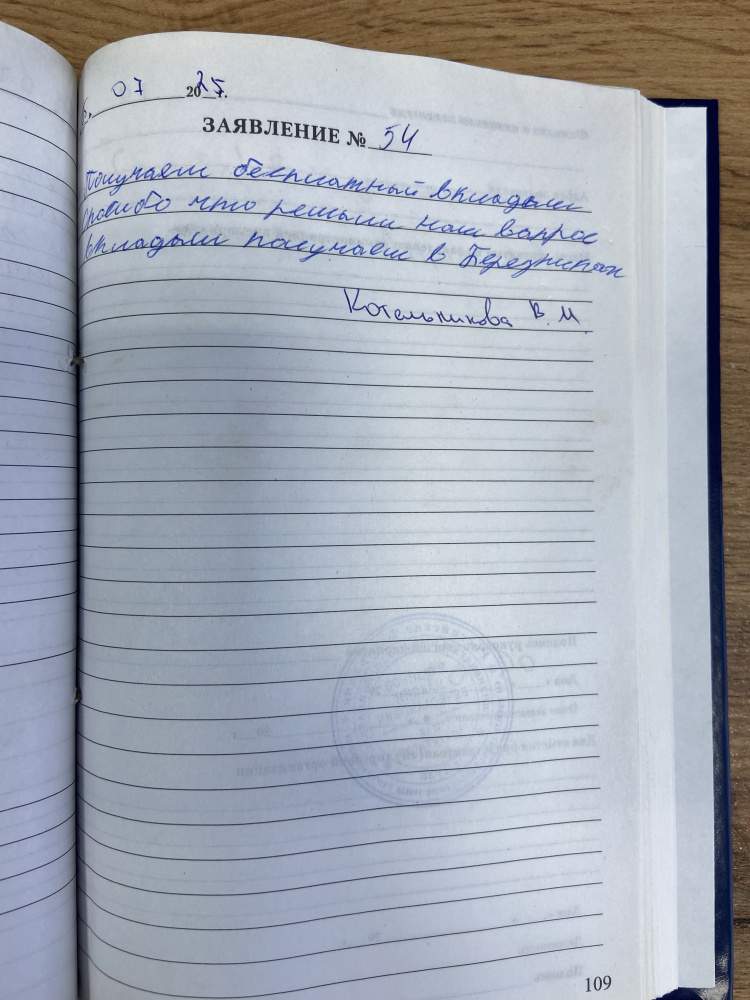 07 2025г.
ЗАЯВЛЕНИЕ № 54
Получаем бесплатный вкладыши
Спасибо что решили наш вапрос
вкладыши получаем в Березниках
Котельникова В. М.
109